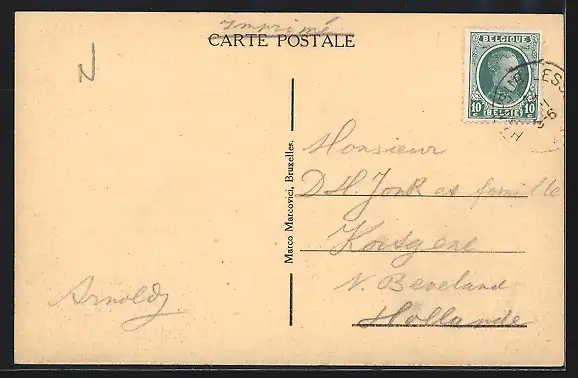 Imprimé
CARTE POSTALE
BELGIQUE
10 BELGIË 10
Marco Marcovici, Bruxelles.
Monsieur
D H. Jonk et famille
Kortgene
N. Beveland
Hollande
Arnoldy